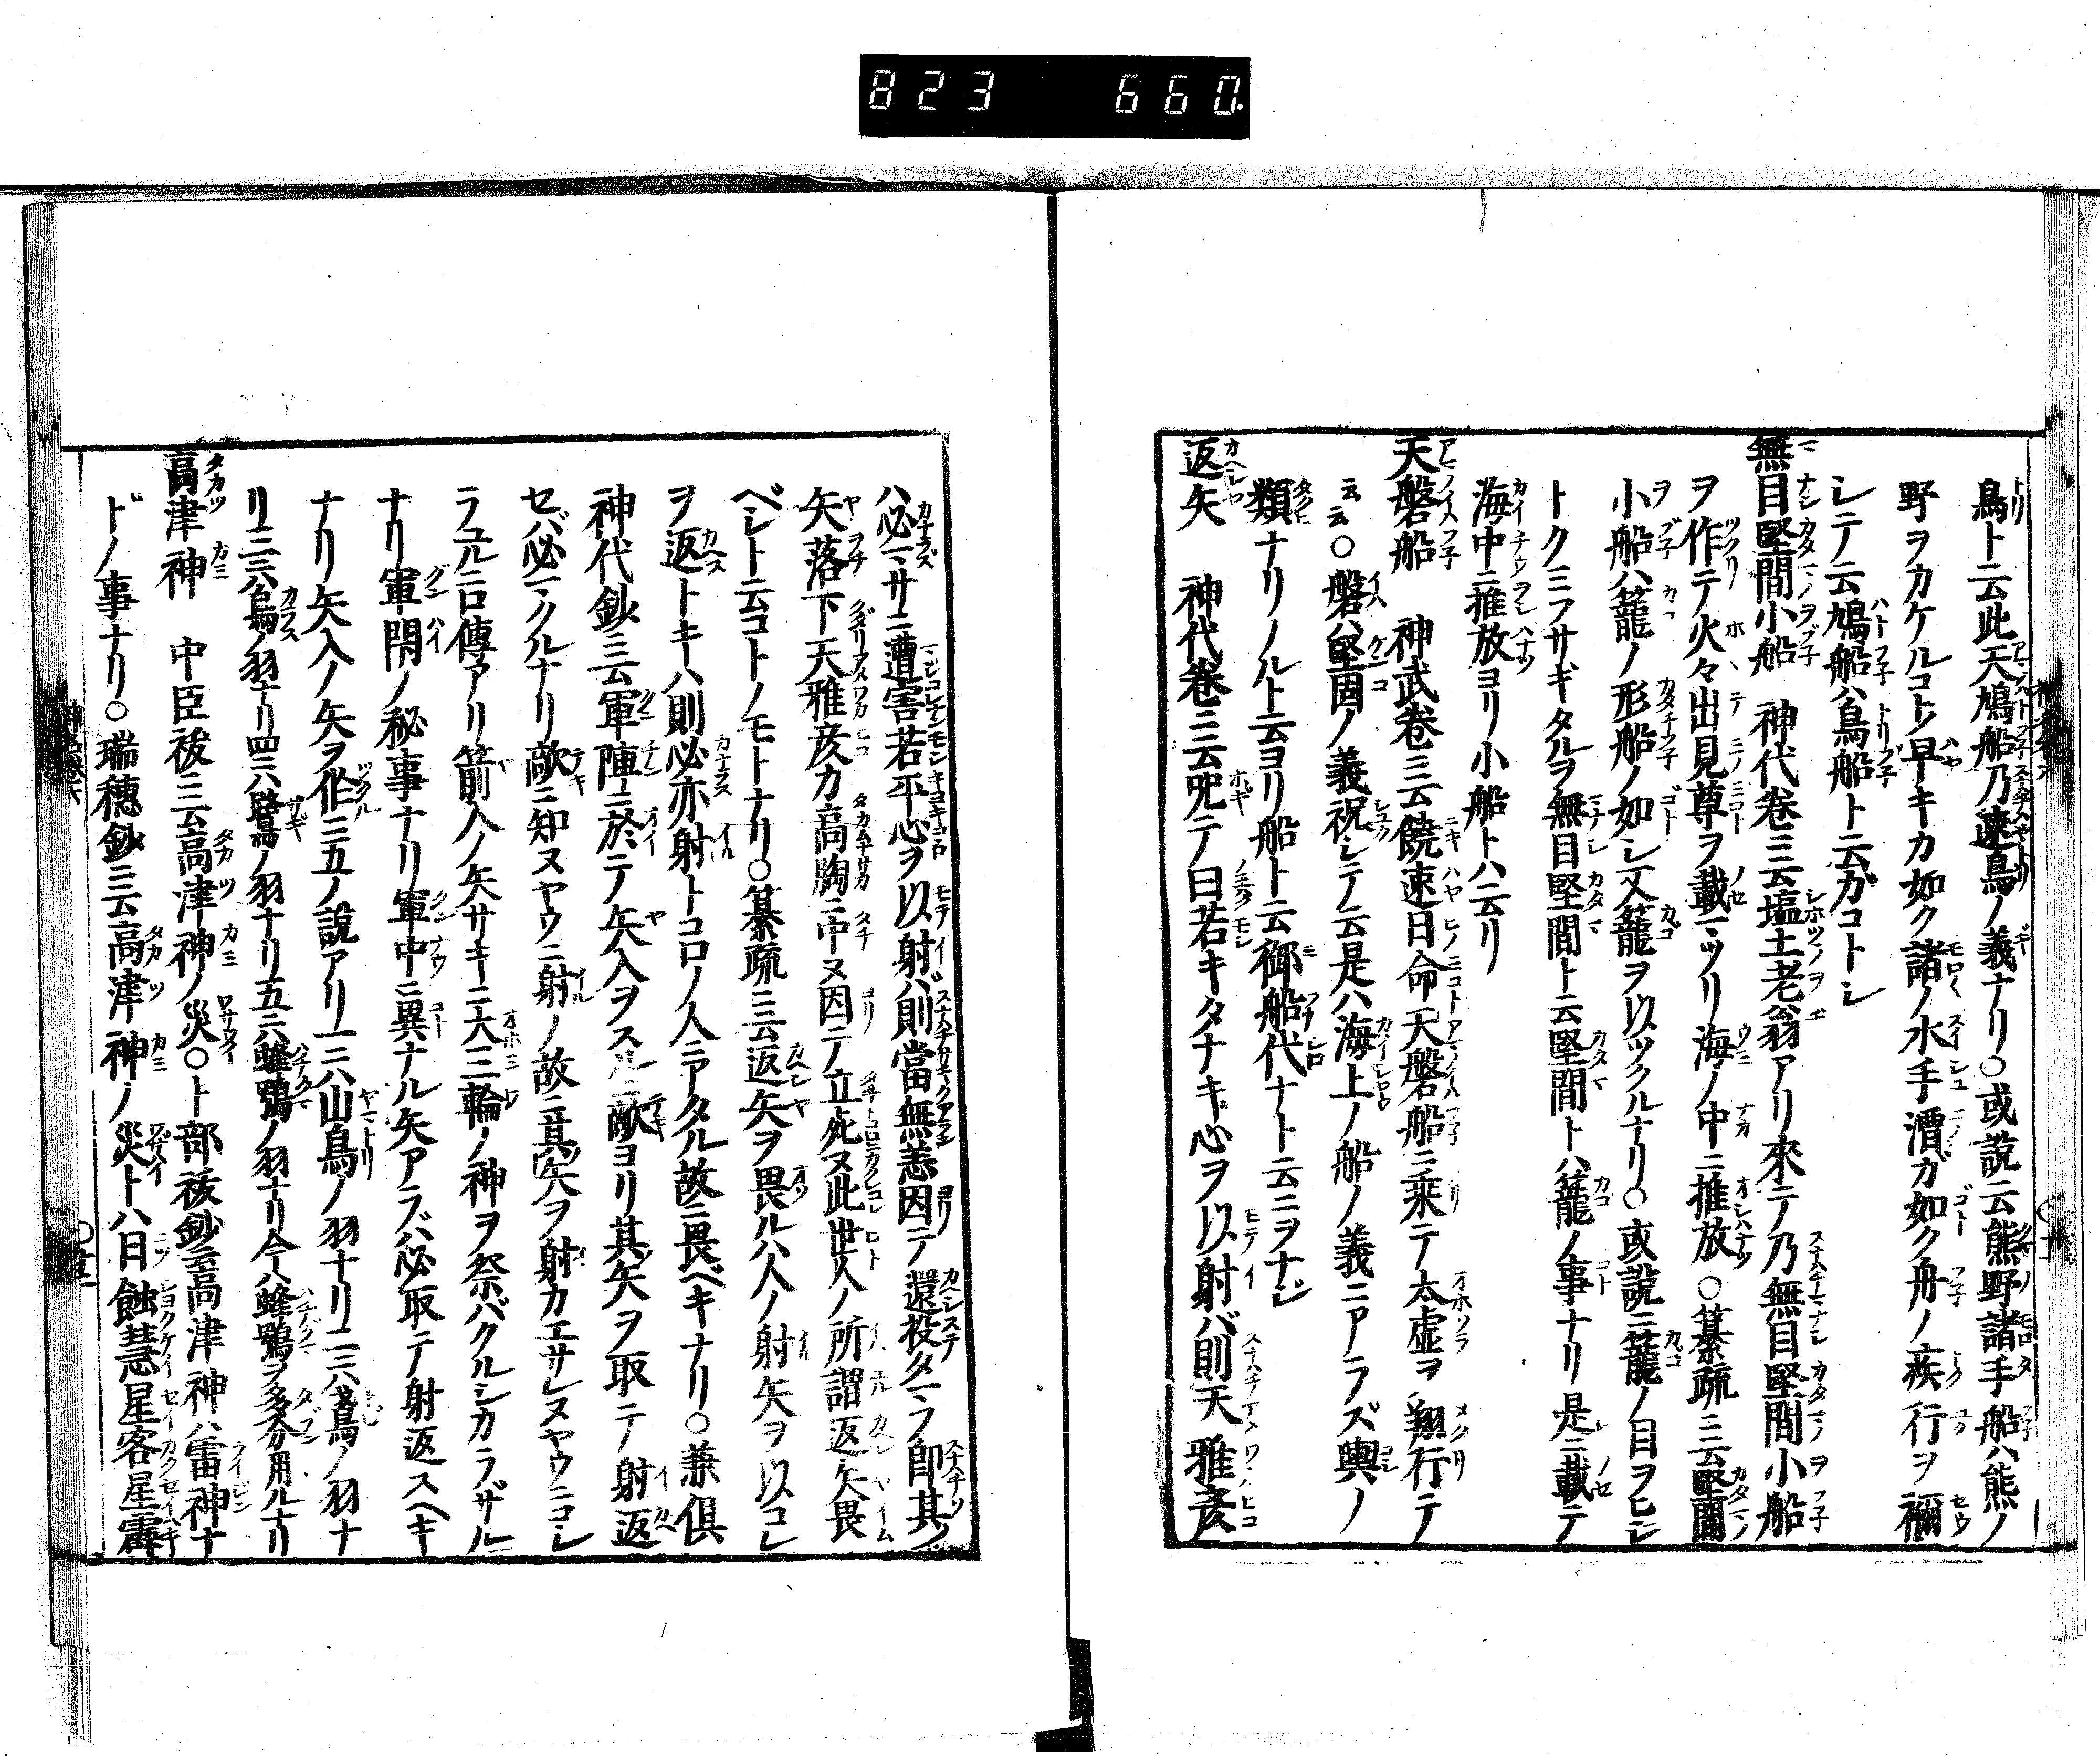 823 660.
鳥ト云此天鳩船乃速鳥ノ義ナリ○或説云熊野諸手船ハ熊ノ
野ヲカケルコトノ早キカ如ク諸ノ水手漕ガ如ク舟ノ疾行ヲ稱
シテ云鳩船ハ鳥船ト云ガコトシ
無目堅間小船 神代巻ニ云塩土老翁アリ來テ乃無目堅間小船
ヲ作テ火々出見尊ヲ載マツリ海ノ中ニ推放○纂疏ニ云堅間
小船ハ籠ノ形船ノ如シ又籠ヲ以ツクルナリ○或説ニ籠ノ目ヲヒシ
トクミフサギタルヲ無目堅間ト云堅間トハ籠ノ事ナリ是ニ載テ
海中ニ推放ヨリ小船トハ云リ
天磐船 神武巻ニ云饒速日命天磐船ニ乗テ太虚ヲ翔行テノ
云云○磐ハ堅固ノ義祝シテ云是ハ海上ノ船ノ義ニアラズ輿ノ
類ナリノルト云ヨリ船ト云御船代ナト云ニヲナジ
返矢 神代巻ニ云咒テ曰若キタナキ心ヲ以射バ則天雅彦
ハ必マサニ遭害若平心ヲ以射バ則當無恙因テ還投タマフ即其ノ
矢落下天雅彦カ高胸ニ中ヌ因テ立死ヌ此世人ノ所謂返矢畏
ベシト云コトノモトナリ○纂疏ニ云返矢ヲ畏ルハ人ノ射矢ヲ以コレ
ヲ返トキハ則必亦射トコロノ人ニアタル故ニ畏ベキナリ○兼倶
神代鈔ニ云軍陣ニ於テ矢入ヲスルニ敵ヨリ其矢ヲ取テ射返
セバ必マクルナリ敵ニ知ヌヤウニ射ノ故ニ其矢ヲ射カエサレヌヤウニコレ
ラユル口傳アリ箭入ノ矢サキニ大三輪ノ神ヲ祭バクルシカラザル
ナリ軍閇ノ秘事ナリ軍中ニ異ナル矢アラバ必取テ射返スヘキ
ナリ矢入ノ矢ヲ作ニ五ノ説アリ一ニハ山鳥ノ羽ナリ二ニハ鵄ノ羽ナ
リ三ニハ烏ノ羽ナリ四ニハ鷺ノ羽ナリ五ニハ蜂鷹ノ羽ナリ今ハ蜂鷹ヲ多分用ルナリ
高津神 中臣祓ニ云高津神ノ災○卜部祓鈔云高津神ハ雷神ナ
ドノ事ナリ○瑞穂鈔ニ云高津神ノ災トハ日蝕彗星客星霧